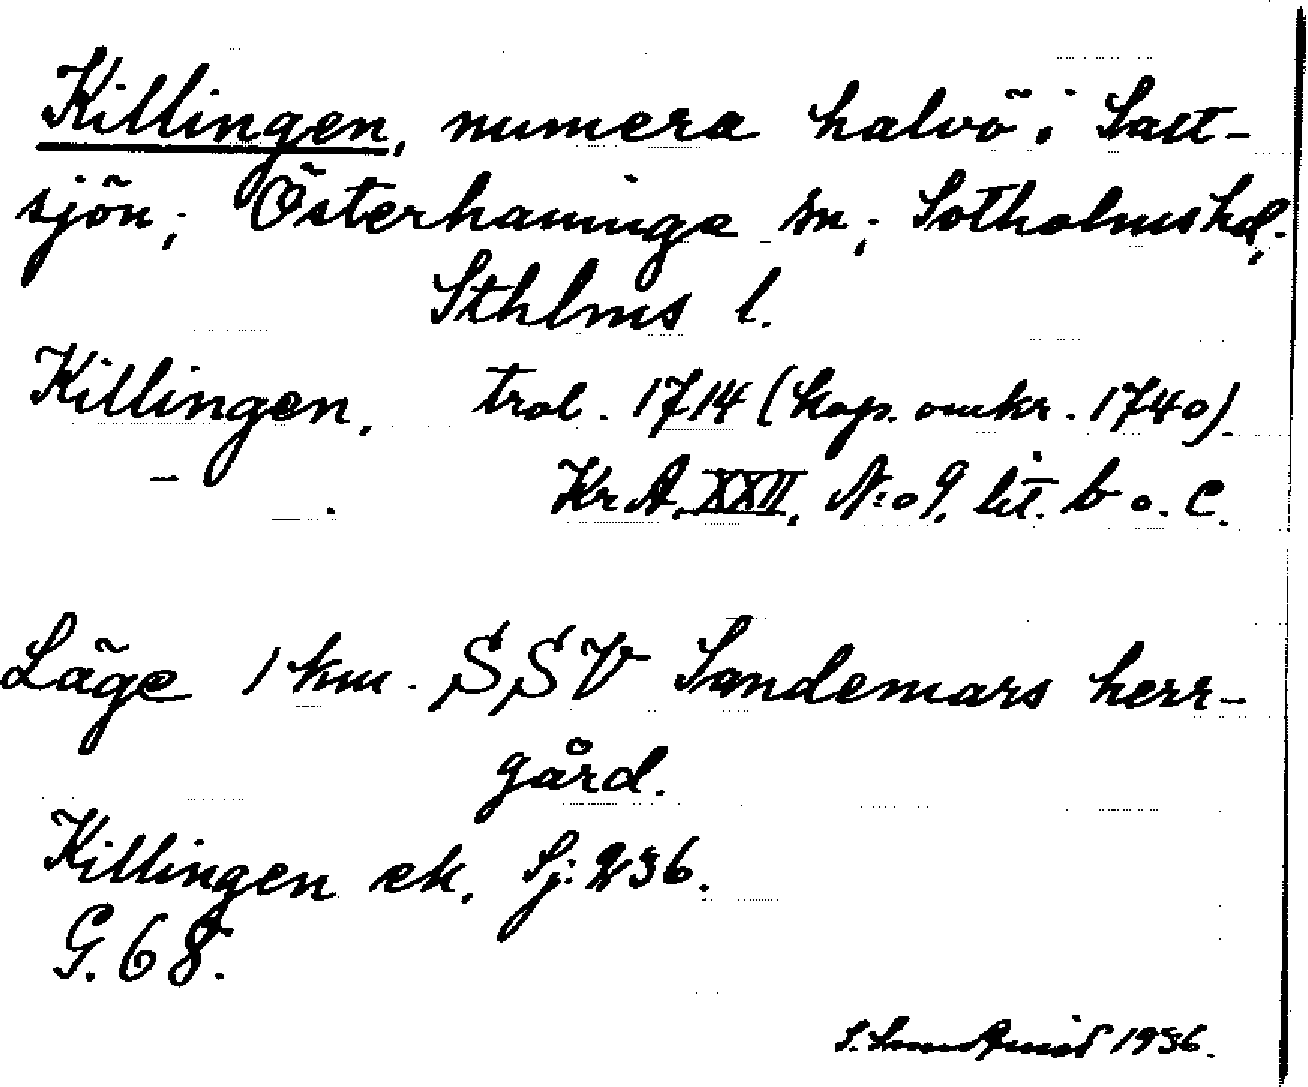 Killingen, numera halvö i Salt-
sjön, Österhaninge sn, Sotholms hd,
Sthlms l.
Killingen, trol. 1714 (kop. omkr. 1740).
Kr A. XXII, N:o 9, lit. b o. c.
Läge 1 km. SSV Sandemars herr-
gård.
Killingen ek. Sj: 236.
G. 68.
S. 1936.